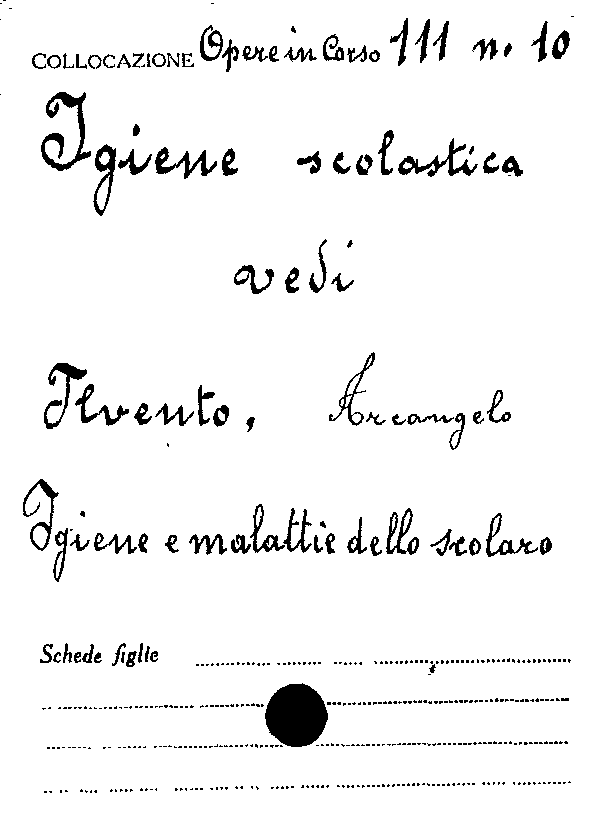 COLLOCAZIONE Opere in Corso 111 n. 10
Igiene scolastica
vedi
Ilvento, Arcangelo
Igiene e malattie dello scolaro
Schede figlie